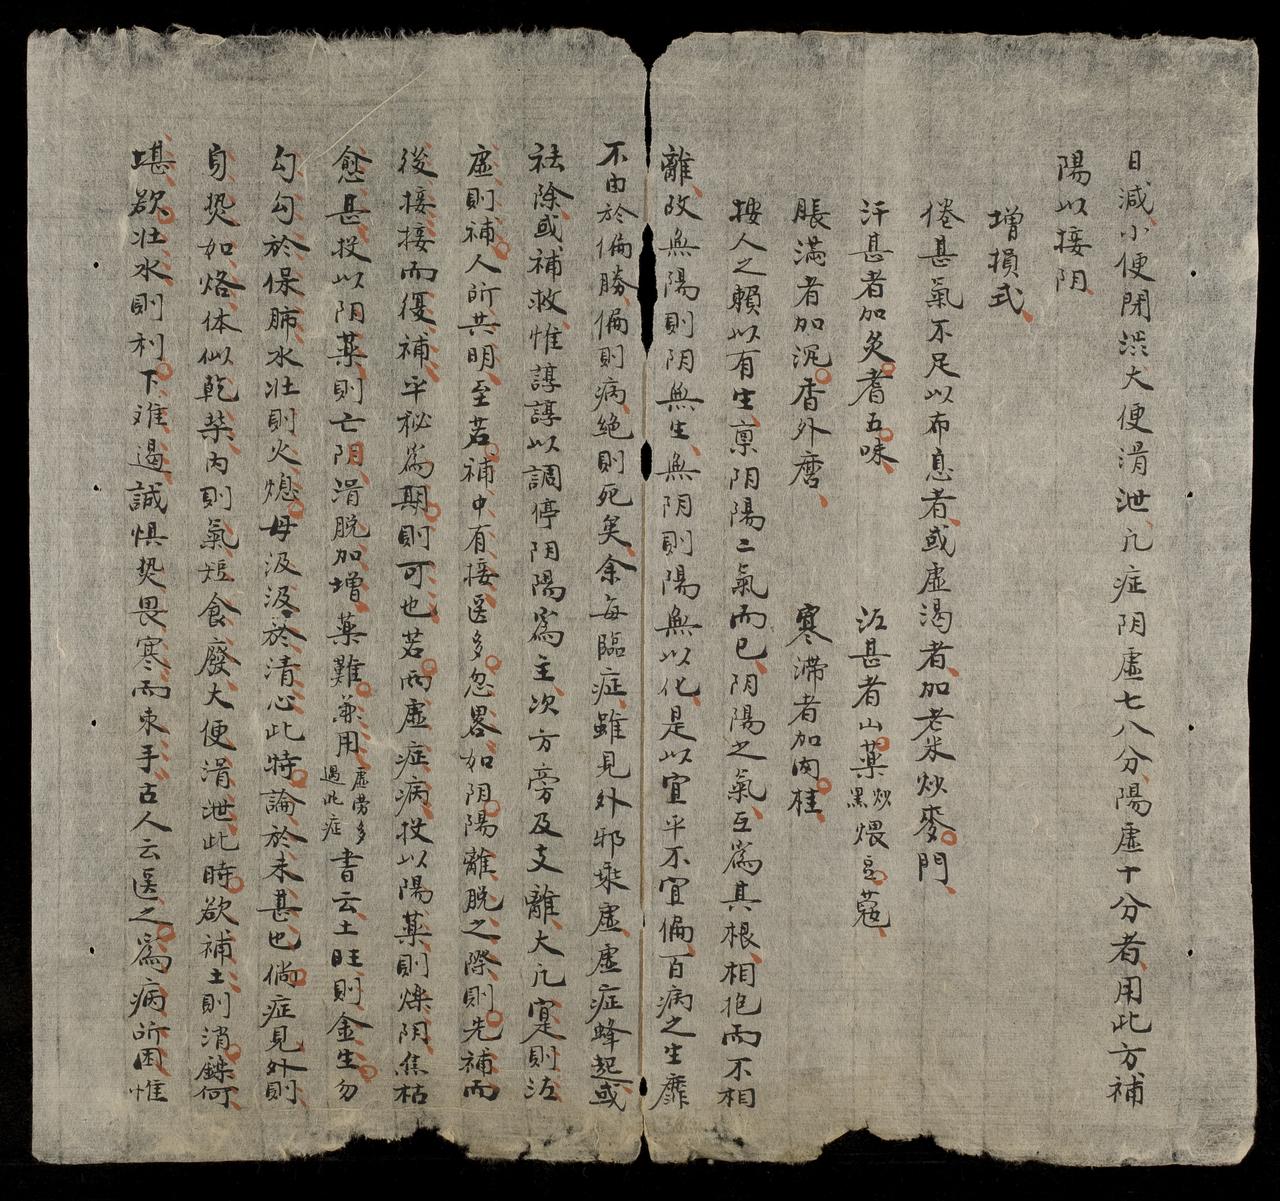 日減小便閉澁大便滑泄凢症阴虛七八分陽虛十分者用此方補
陽以接阴
增損式
倦甚氣不足以布息者或虛渴者加老米炒麥門
汗甚者加炙耆五味 泻甚者山藥炒黑煨豆蔻
脹滿者加沉香外磨 寒滯者加肉桂
按人之賴以有生禀阴陽二氣而已阴陽之氣互爲其根相抱而不相
離故無陽則阴無生無阴則陽無以化是以宜平不宜偏百病之生靡
不由於偏勝偏則病絶則死矣余每臨症雖見外邪乘虛虛症蜂起或
祛除或補救惟諄諄以調停阴陽爲主次方旁及支離大凢寔則泻
虛則補人所共明至若補中有接医多忽畧如阴陽離脱之際則先補而
後接接而復補平秘爲期則可也若両虛症病投以陽藥則燥阴焦枯
愈甚投以阴藥則亡阴滑脱加增藥難兼用虛劳多過此症書云土旺則金生勿
勾勾於保肺水壮則火熄毋汲汲於清心此特論於未甚也倘症見外則
身热如烙体似乾柴内則氣短食廢大便滑泄此時欲補土則消鑠何
堪欲壮水則利下难遏誠惧热畏寒而束手古人云医之爲病所困惟